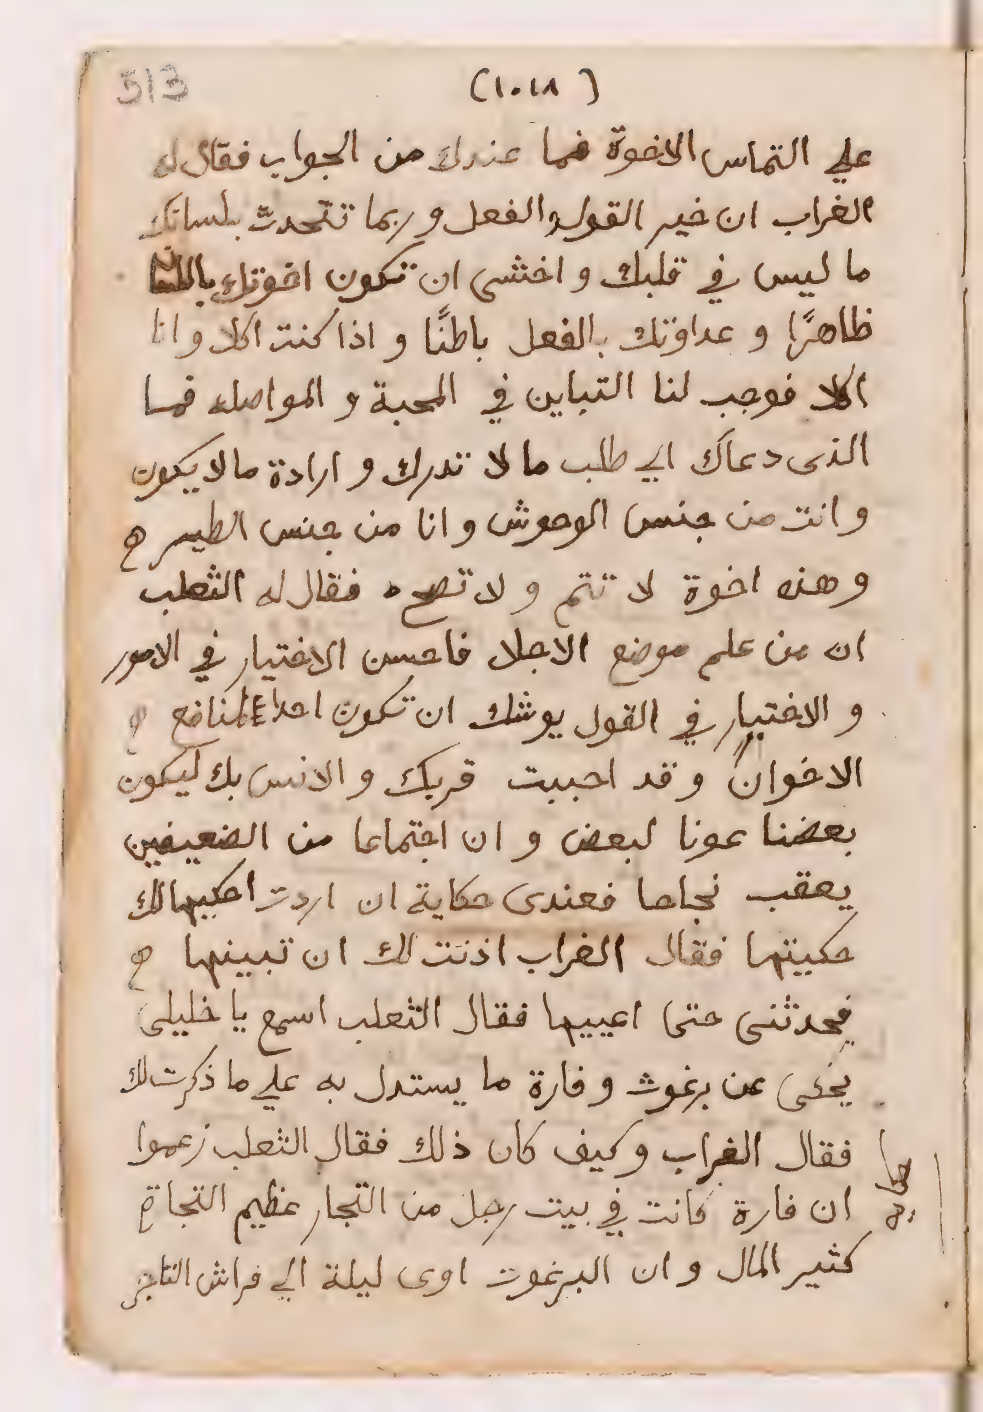 513
(١٠١٨)
علي التماس الاخوة فما عندك من الجواب فقال له
الغراب ان خير القول الفعل و ربما تتحدث بلسانك
ما ليس في قلبك و اخشى ان تكون اخوتك
ظاهرًا و عداوتك بالفعل باطنًا و اذا كنت اكلا و انا
اكلا فوجب لنا التباين في المحبة و المواصله فما
الذى دعاك الي طلب ما لا تدرك و ارادة ما لا يكون
و انت من جنس الوحوش و انا من جنس الطير
و هذه اخوة لا تتم و لا تصح ه فقال له الثعلب
ان من علم موضع الاجلا فاحسن الاختيار في الامور
و الاختيار في القول يوشك ان تكون احدا المنافع
الاخوان و قد احببت قربك و الانس بك ليكون
بعضنا عونا لبعض و ان اجتماعا من الضعيفين
يعقب نجاحا فعندى حكاية ان اردت احكيها لك
حكيتها فقال الغراب اذنت لك ان تبينها
فحدثنى حتى اعيها فقال الثعلب اسمع يا خليلى
يحكى عن برغوث و فارة ما يستدل به علي ما ذكرت لك
فقال الغراب و كيف كان ذلك فقال الثعلب زعموا
ان فارة كانت في بيت رجل من التجار عظيم التجاة
كثير المال و ان البرغوت اوى ليلة الي فراش التاجر
حكاية